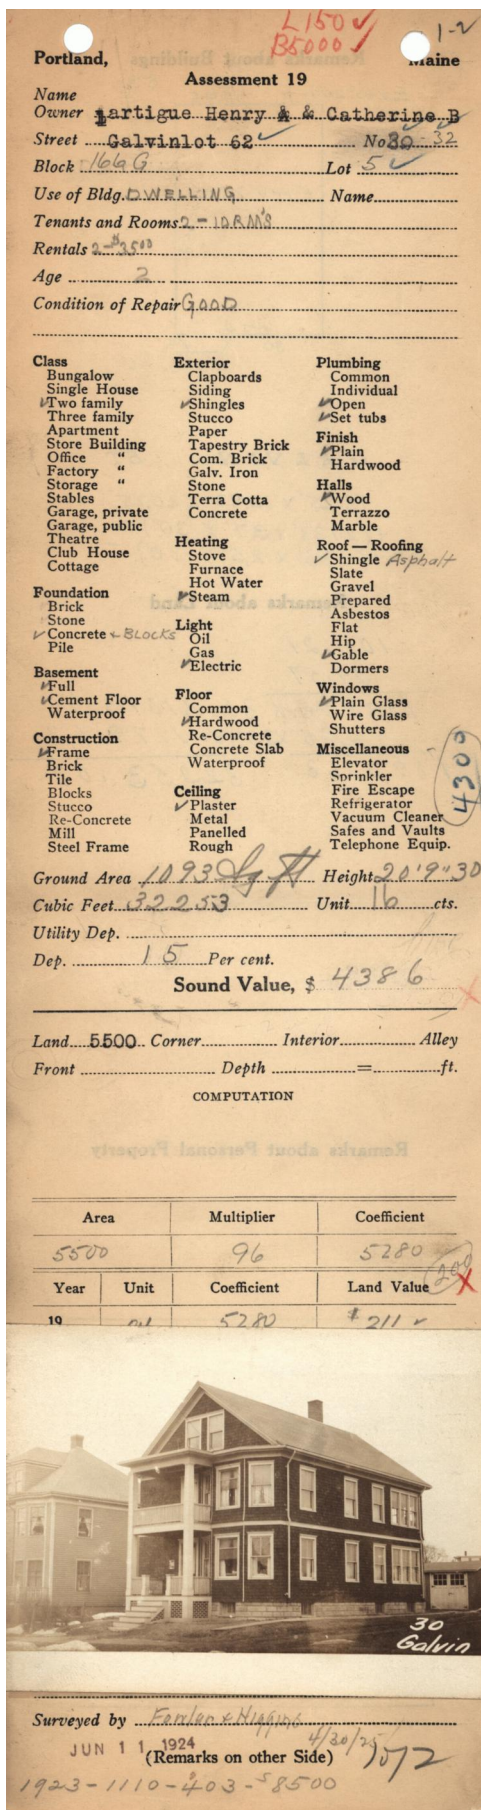 L 150 ✓
B5000 ✓
1-2
Portland, Maine
Assessment 19
Name
Owner Lartigue Henry A & Catherine B
Street Galvin lot 62 No 30-32
Block 166 G Lot 5
Use of Bldg. DWELLING Name
Tenants and Rooms 2-10RM'S
Rentals 2-$3500
Age 2
Condition of Repair GOOD
Class
Bungalow
Single House
✓Two family
Three family
Apartment
Store Building
Office "
Factory "
Storage "
Stables
Garage, private
Garage, public
Theatre
Club House
Cottage
Foundation
Brick
Stone
✓Concrete + BLOCKS
Pile
Basement
✓Full
✓Cement Floor
Waterproof
Construction
✓Frame
Brick
Tile
Blocks
Stucco
Re-Concrete
Mill
Steel Frame
Exterior
Clapboards
Siding
✓Shingles
Stucco
Paper
Tapestry Brick
Com. Brick
Galv. Iron
Stone
Terra Cotta
Concrete
Heating
Stove
Furnace
Hot Water
✓Steam
Light
Oil
Gas
✓Electric
Floor
Common
✓Hardwood
Re-Concrete
Concrete Slab
Waterproof
Ceiling
✓Plaster
Metal
Panelled
Rough
Plumbing
Common
Individual
✓Open
✓Set tubs
Finish
✓Plain
Hardwood
Halls
✓Wood
Terrazzo
Marble
Roof — Roofing
✓Shingle Asphalt
Slate
Gravel
Prepared
Asbestos
Flat
Hip
✓Gable
Dormers
Windows
✓Plain Glass
Wire Glass
Shutters
Miscellaneous
Elevator
Sprinkler
Fire Escape
Refrigerator
Vacuum Cleaner
Safes and Vaults
Telephone Equip.
4309
Ground Area 1093 Sq ft Height 20'9"30
Cubic Feet 32253 Unit 16 cts.
Utility Dep.
Dep. 15 Per cent.
Sound Value, $ 4386
Land 5500 Corner Interior Alley
Front Depth = ft.
COMPUTATION
Area Multiplier Coefficient
5500 96 5280
200
Year Unit Coefficient Land Value
19 04 5280 $211 ✓
30
Galvin
Surveyed by Fowler & Higgins
JUN 11 1924 4/30/25
(Remarks on other Side)
1923-1110-403-$8500